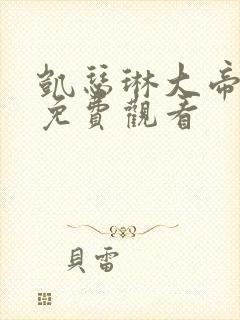 凱瑟琳大帝
免費觀看
貝雷